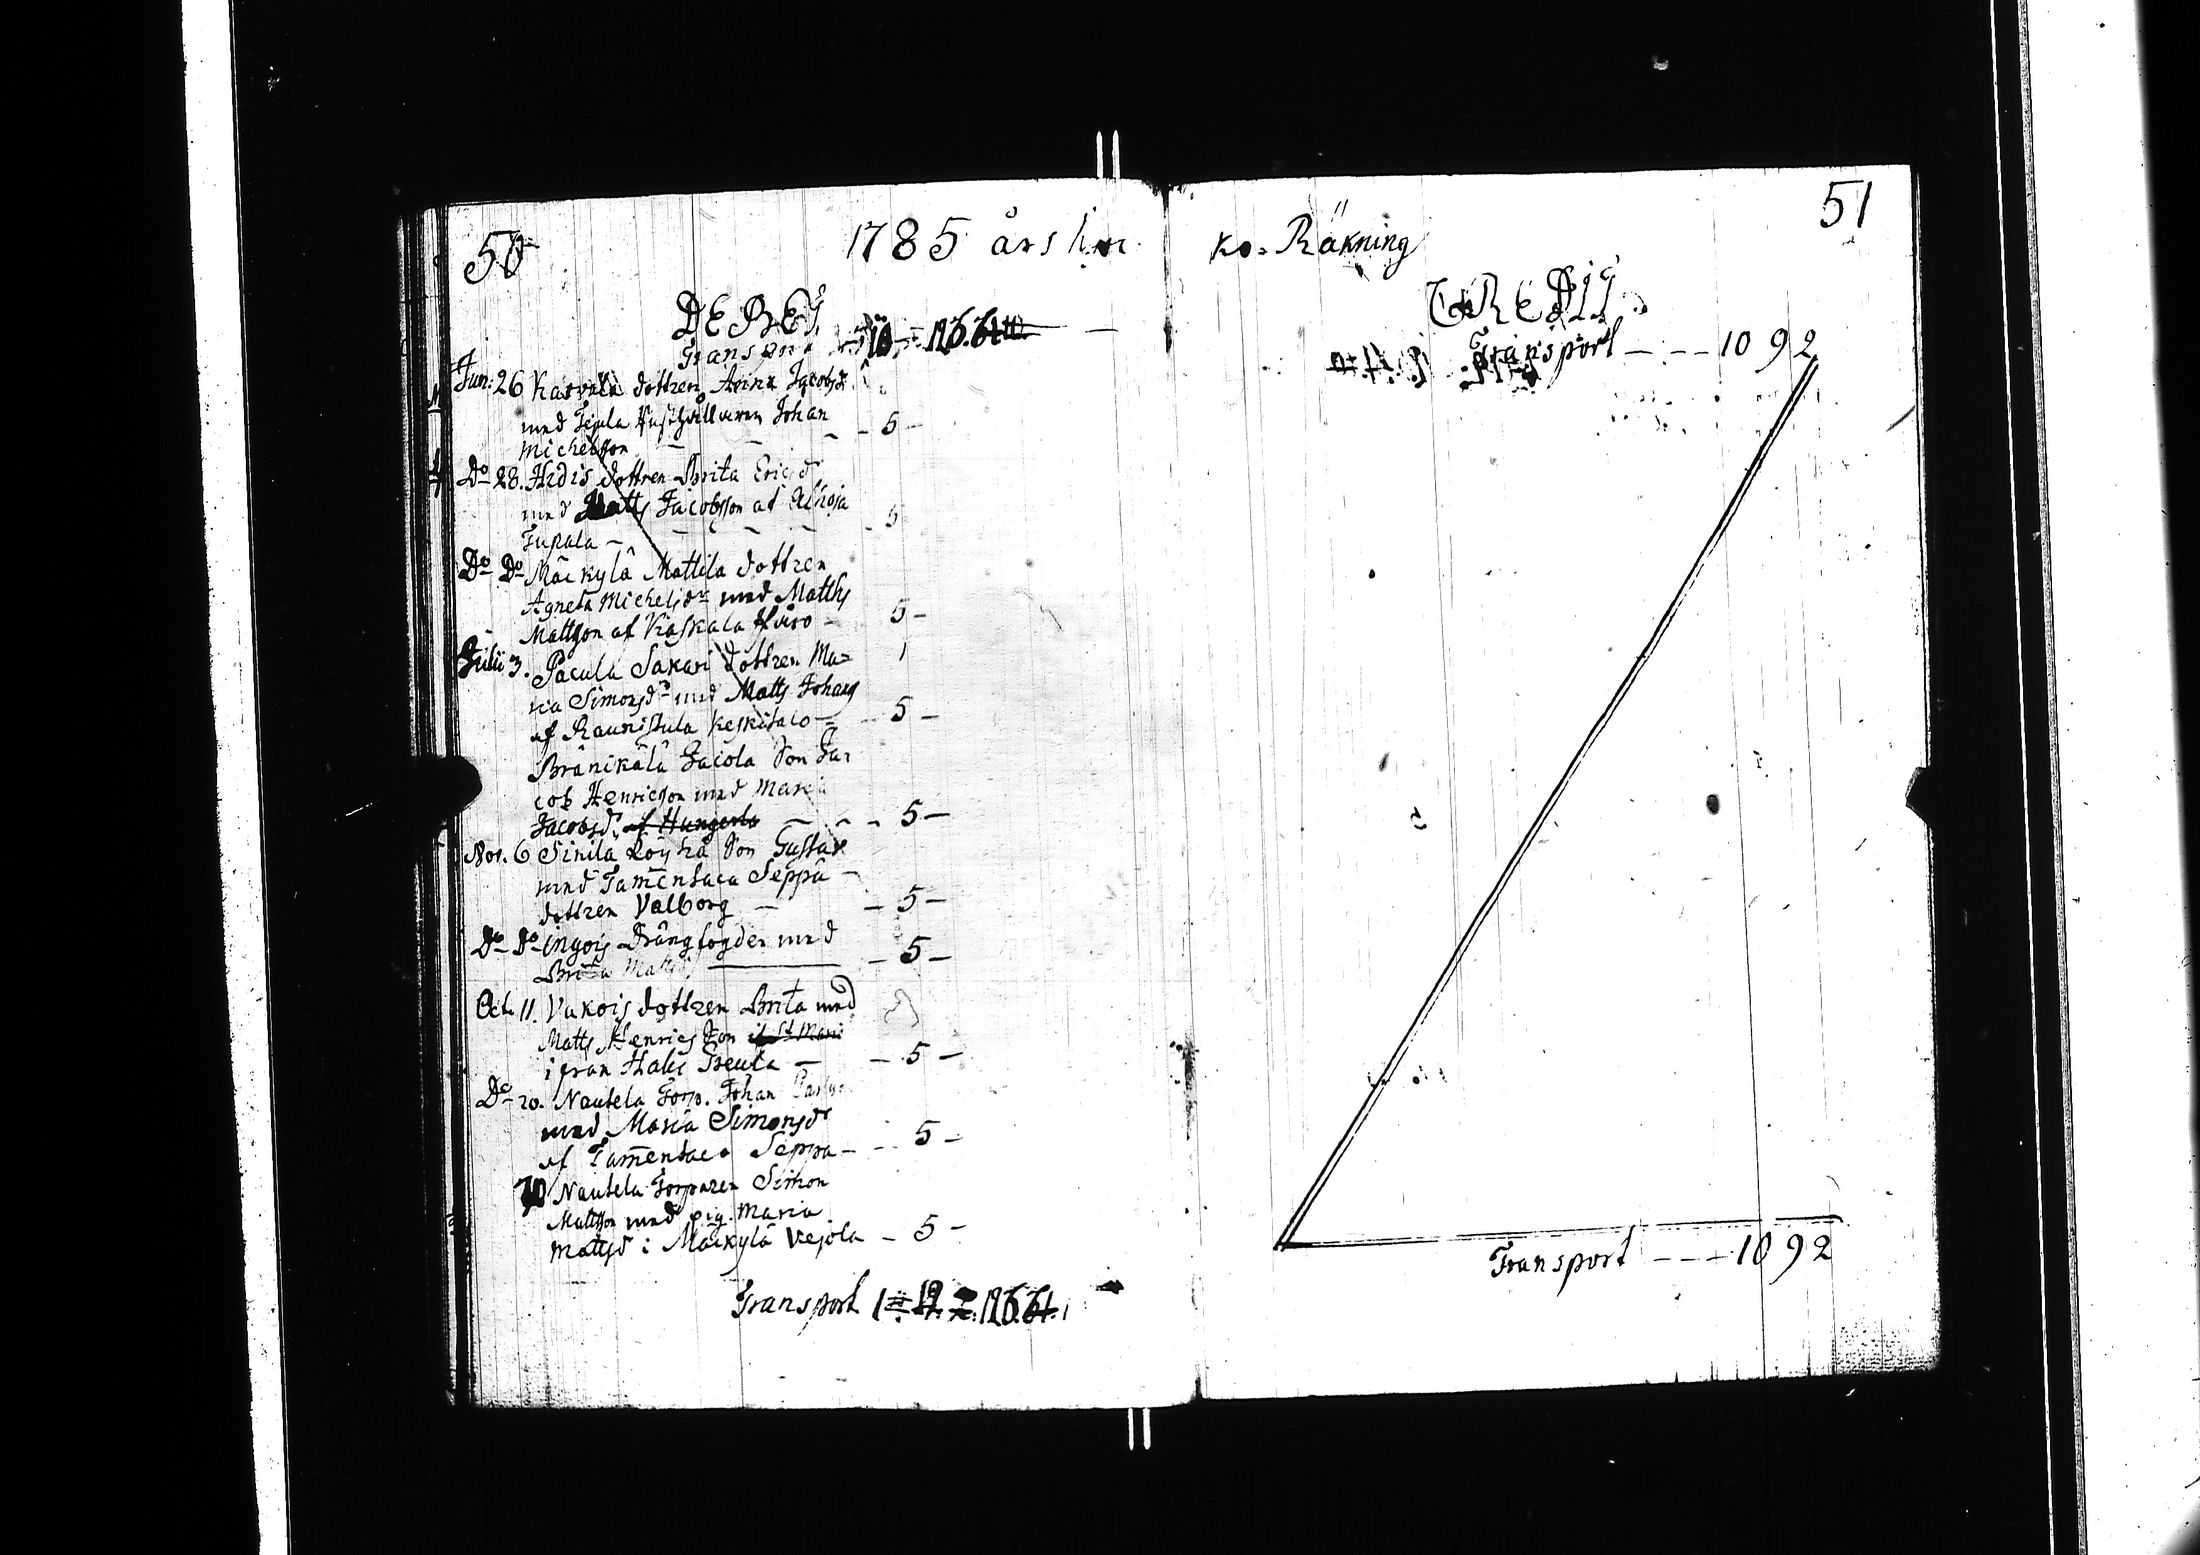 50
1785 års
DEBET
Transport
Jun: 26 Karvala dottren Jacobsd
med Johan
Michelsson — 5 —
Do 28. Hidis dottren Brita Ericsd
med Matts Jacobsson af
— 5
Do Do Mäekylä Mattila dottren
Agneta Michelsdr med Matths
Mattsson af Kaskala — 5 —
Julii 3. Pacula Sakari dottren Ma=
ria Simonsdr med Matts Johans
af Raunistula Keskitalo — 5 —
Bränikälä Jacola Son Ja=
cob Henricsson med Maria
Jacobsdr af Hungerla — 5 —
Nov. 6 Sinila Son Gustav
med Tam̄entaca Seppä —
dottren Valborg — — 5 —
Do Do ingois Drängfogden med
Brita Matts — 5 —
Oct. 11. Vukois dottren Brita med
Matts Henrics Son
ifrån — 5 —
Do 20. Nautela Torp. Johan
med Maria Simonsdr
af Tam̄entaca Seppä — 5 —
Nautela Torparen Simon
Mattsson med pig. Maria
Mattsd i Mäekylä Vejola — 5 —
Transport
51
ko= Räkning
CREDIT
Transport — — — 1092
Transport — — — 1092